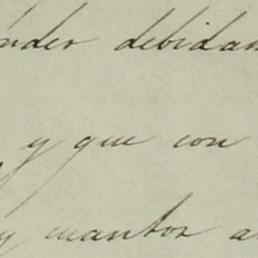 nder debidam
y que con
y cuantos a